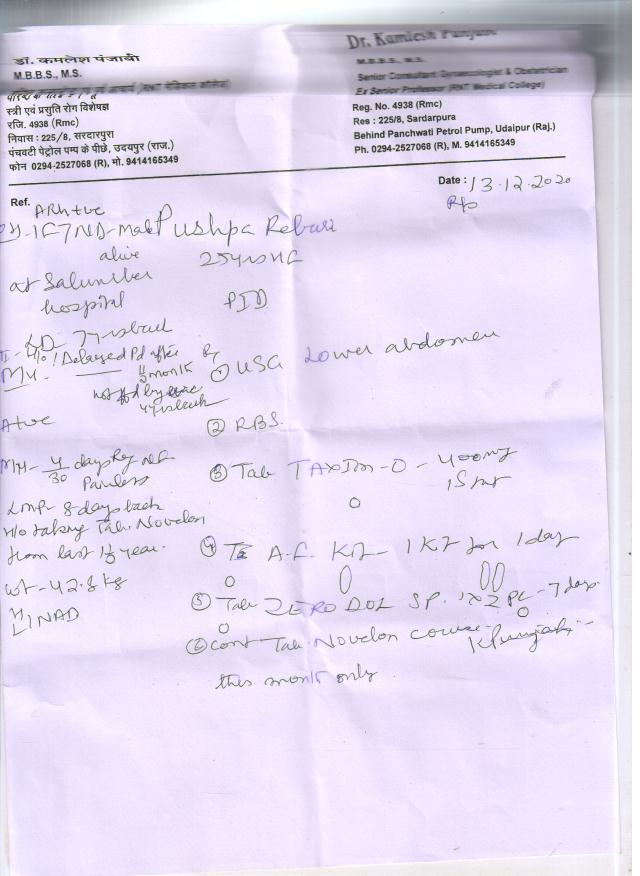 डॉ. कमलेश पंजाबी
M.B.B.S., M.S.
स्त्री एवं प्रसुति रोग विशेषज्ञ
रजि. 4938 (Rmc)
निवास : 225/8, सरदारपुरा
पंचवटी पेट्रोल पम्प के पीछे, उदयपुर (राज.)
फोन 0294-2527068 (R), मो. 9414165349
Dr. Kamlesh Punjabi
M.B.B.S., M.S.
Senior Consultant Gynaecologist & Obstetrician
Ex Senior Professor (RNT Medical College)
Reg. No. 4938 (Rmc)
Res : 225/8, Sardarpura
Behind Panchwati Petrol Pump, Udaipur (Raj.)
Ph. 0294-2527068 (R), M. 9414165349
Date : 13.12.2020
Ref.
ARh+ve
Pushpa Rebari
alive
25yrs
at Salumber
hospital
PID
LD 7yrs back
H/o Delayed Pd after
① USG Lower abdomen
② RBS.
MH- 4/30 days Reg
Painless
③ Tab TAXIM-O - 400mg
LMP 8 days back
H/o taking Tab Novelon
from last 1½ year.
④ A.F. Kit - 1 Kit for 1 day
wt- 42.8 kg
⑤ Tab ZERODOL SP. 1x2 - 7 days
NAD
⑥ cont Tab Novelon course
this month only